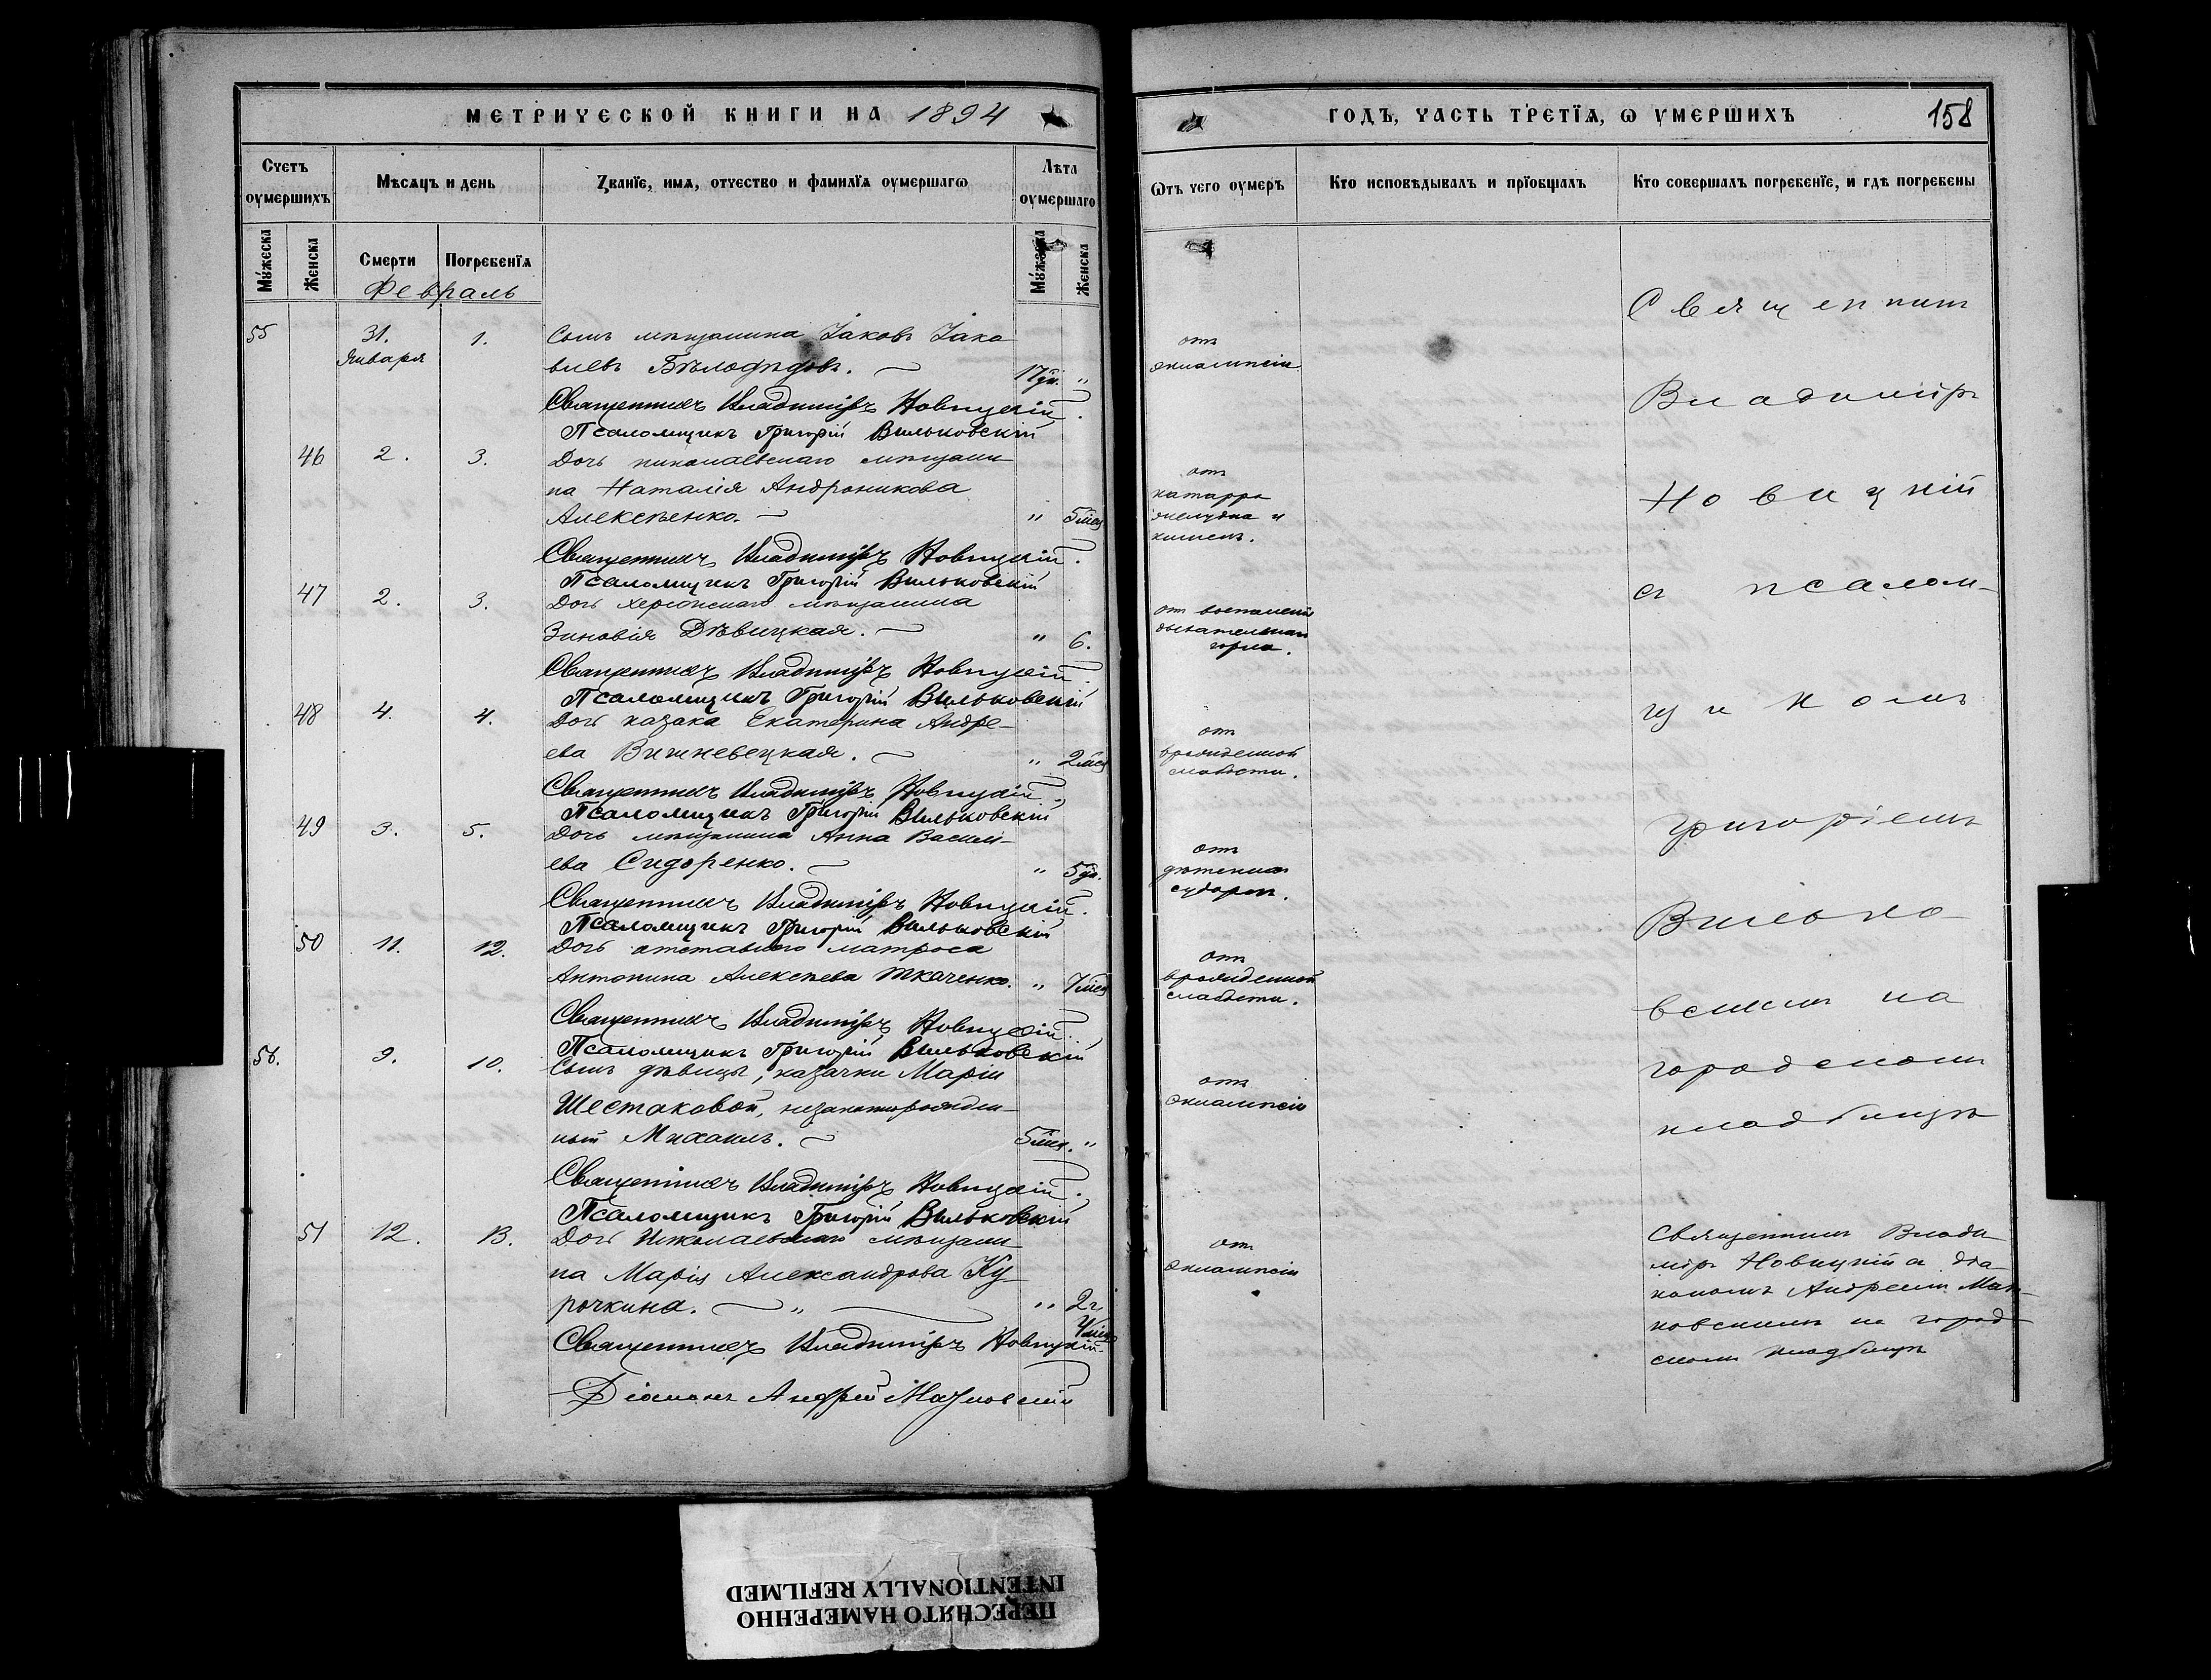 МЕТРИЧЕСКОЙ КНИГИ НА 1894
Счетъ оумершихъ
Мѣсяцъ и день
Званїе, имѧ, отчество и фамилїѧ оумершагѡ
Лѣта оумершаго
Мꙋжеска
Женска
Смерти
Погребенїѧ
Мꙋжеска
Женска
Февраль
55 31. Января 1. Сынъ мѣщанина Іаковъ Іако-
влевъ Бѣлодѣдовъ. 17 дн. "
Священникъ Владиміръ Новицкій.
Псаломщикъ Григорій Вильковскій
46 2. 3. Дочь николаевскаго мѣщани-
на Наталія Андроникова
Алексѣенко. " 5 мѣс
Священникъ Владиміръ Новицкій.
Псаломщикъ Григорій Вильковскій
47 2. 3. Дочь херсонскаго мѣщанина
Зиновія Дѣвицкая. " 6.
Священникъ Владиміръ Новицкій
Псаломщикъ Григорій Вильковскій
48 4. 4. Дочь казака Екатерина Андре-
ева Вишневецкая. " 2 мѣс
Священникъ Владиміръ Новицкій.
Псаломщикъ Григорій Вильковскій
49 3. 5. Дочь мѣщанина Анна Васильева
ева Сидоренко. " 5 дн.
Священникъ Владиміръ Новицкій.
Псаломщикъ Григорій Вильковскій
50 11. 12. Дочь отставнаго матроса
Антонина Алексѣева Ткаченко. " 7 мѣс
Священникъ Владиміръ Новицкій.
Псаломщикъ Григорій Вильковскій
56. 9. 10. Сынъ дѣвицы, казачки Маріи
Шестаковой, незаконнорожден-
ный Михаилъ. 5 мѣс. "
Священникъ Владиміръ Новицкій.
Псаломщикъ Григорій Вильковскій
51 12. 13. Дочь Николаевскаго мѣщани-
на Марія Александрова Ку-
рочкина. " " 2 г.
4 мѣс
Священникъ Владиміръ Новицкій
Діаконъ Андрей
ГОДЪ, ЧАСТЬ ТРЕТЇѦ, Ѡ УМЕРШИХЪ 158
Ѿтъ чего оумеръ
Кто исповѣдывалъ и прїобщалъ
Кто совершалъ погребенїе, и гдѣ погребены
отъ
эклампсіи
отъ
катарра
желудка и
кишекъ.
отъ воспаленія
дыхательнаго
горла.
отъ
врожденной
слабости.
отъ
дѣтскихъ
судорогъ.
отъ
врожденной
слабости.
отъ
эклампсіи
отъ
эклампсіи
Священникъ
Владиміръ
Новицкій
съ псалом-
щикомъ
Григоріемъ
Вилько-
вскимъ на
городскомъ
кладбищѣ
Священникъ Влади-
міръ Новицкій съ діа-
кономъ Андреемъ
на город-
скомъ кладбищѣ
ПЕРЕСНЯТО НАМЕРЕННО
INTENTIONALLY REFILMED